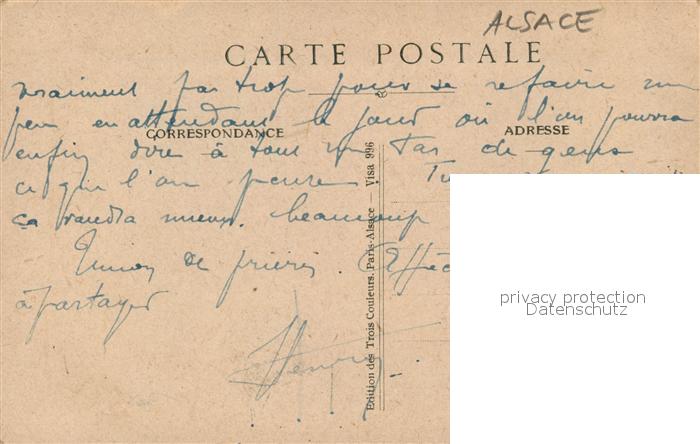 ALSACE
CARTE POSTALE
vraiment pas trop pour se refaire un
peu en attendant le jour où l'on pourra
CORRESPONDANCE
ADRESSE
enfin dire à tout un tas de gens
ce qu'on l'on pense. Tu
ça vaudra mieux. beaucoup
Union de prières. Affec
à partager
Edition des Trois Couleurs. Paris-Alsace — Visa 996
privacy protection
Datenschutz